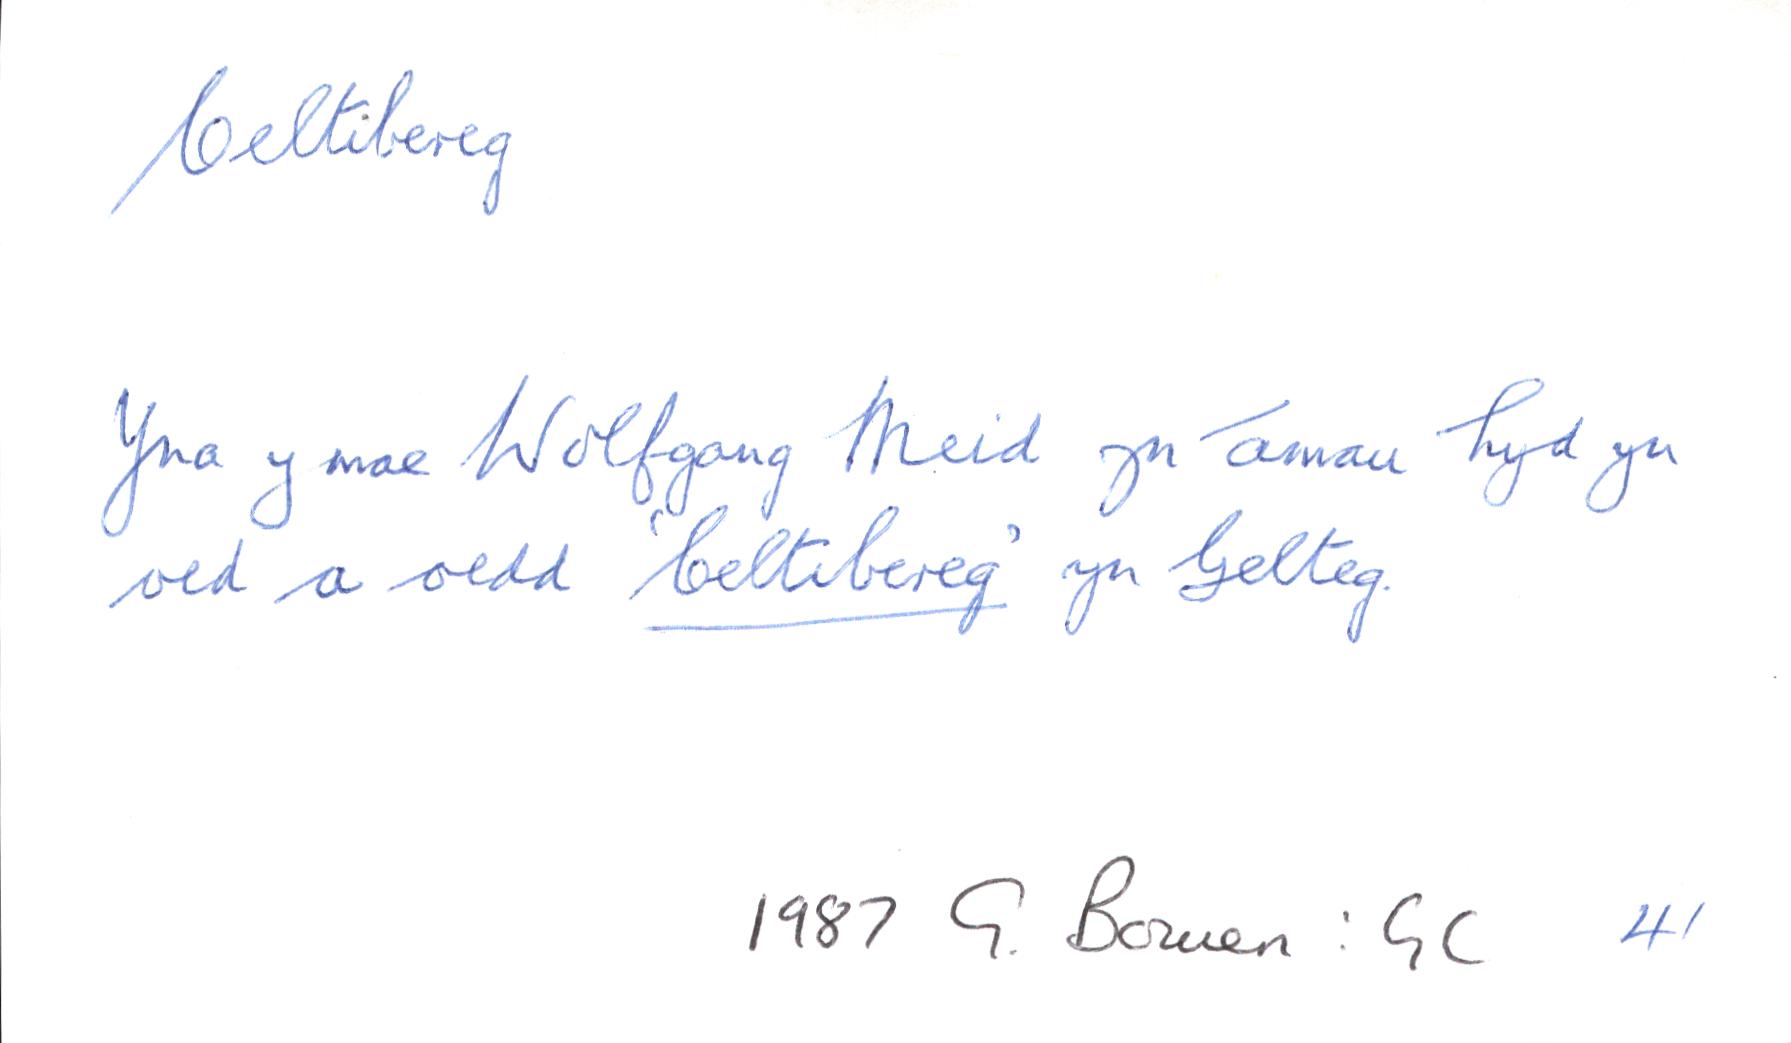 Celtibereg
Yna y mae Wolfgang Meid yn amau hyd yn
oed a oedd 'Celtibereg' yn Gelteg.
1987 G. Bowen : GC 41